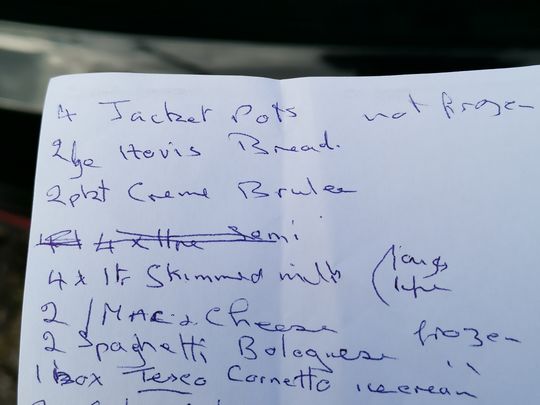 4 Jacket Pots not frozen
2 lge Hovis Bread.
2 pkt Creme Brulee
4 x 1ltre Semi
4 x 1lt Skimmed milk (long life
2 / Mac & Cheese frozen
2 Spaghetti Bolognese "
1 box Tesco Cornetto icecream